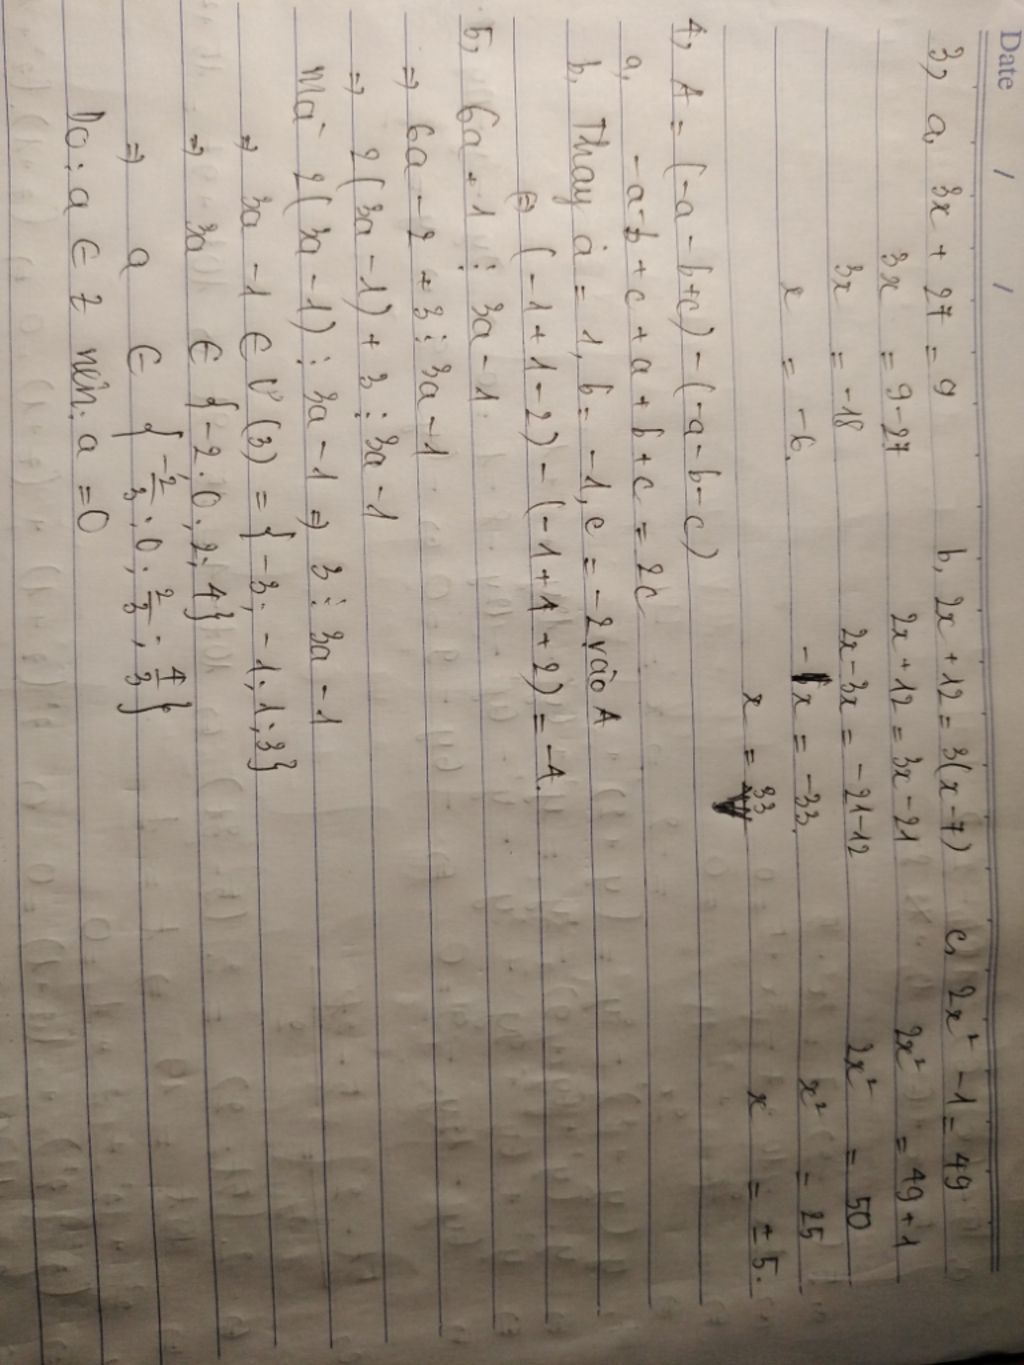 Date / /
3, a, 3x + 27 = 9
3x = 9-27
3x = -18
x = -6.
b, 2x + 12 = 3(x-7)
2x + 12 = 3x - 21
2x - 3x = -21-12
-x = -33.
x = 33
c, 2x² - 1 = 49
2x² = 49+1
2x² = 50
x² = 25
x = ±5.
4, A = (-a - b+c) - (-a-b-c)
a, -a-b+c+a+b+c = 2c
b, Thay a = 1, b = -1, c = -2 vào A
⇒ (-1+1-2) - (-1+1+2) = -4.
5, 6a + 1 ⋮ 3a - 1
⇒ 6a - 2 + 3 ⋮ 3a - 1
⇒ 2(3a - 1) + 3 ⋮ 3a - 1
Mà 2(3a - 1) ⋮ 3a - 1 ⇒ 3 ⋮ 3a - 1
⇒ 3a - 1 ∈ Ư(3) = {-3; -1; 1; 3}
⇒ 3a ∈ {-2; 0; 2; 4}
⇒ a ∈ {-2/3; 0; 2/3; 4/3}
Do: a ∈ Z nên: a = 0